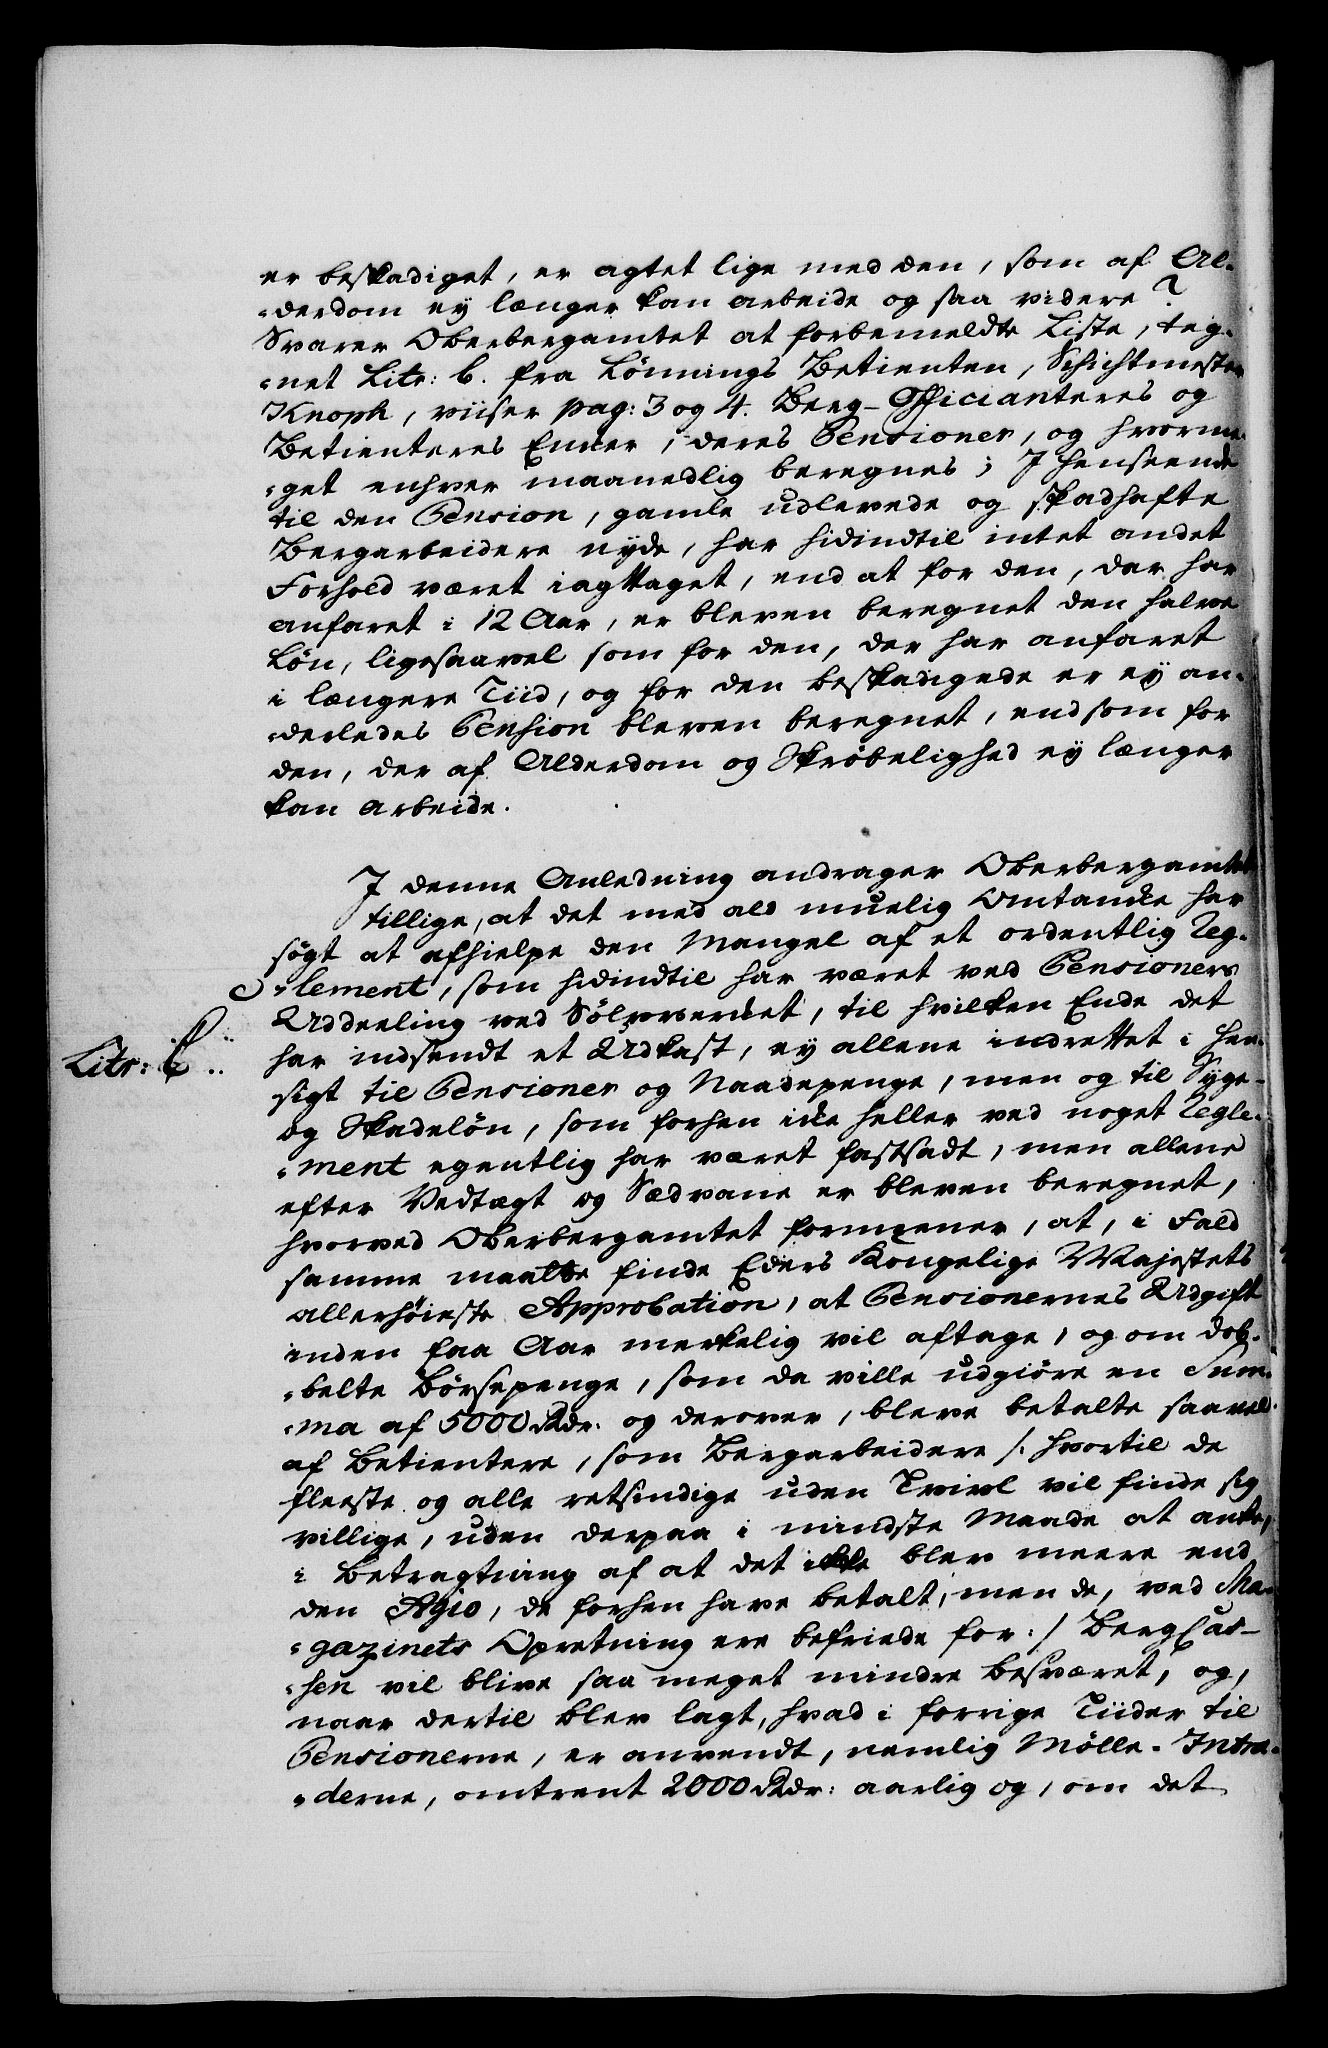 er beskadiget, er agtet lige med den, som af Al-
"derdom ey længer kan arbeide og saa videre?
Svarer Oberbergamtet at forbemeldte Liste, teg-
"net Litr: b. fra Lönnings Betienten, Schichtmester
Knoph, viiser pag: 3 og 4. Berg-Officianteres og
Betienteres Enker, deres Pensioner, og hvorme-
"get enhver maanedlig beregnes; J henseende
til den Pension, gamle udlevede og skadhafte
Bergarbeidere nyde, har hidindtil intet andet
Forhold været iagttaget, end at for den, der har
anfaret i 12 Aar, er bleven beregnet den halve
Lön, ligesaavel som for den, der har anfaret
i længere Tiid, og for den beskadigede er ey an-
"derledes Pension bleven beregnet, end som for
den, der af Alderdom og Skröbelighed ey længer
kan arbeide.
J denne Anledning andrager Oberbergamtet
tillige, at det med ald muelig Omtanke har
sögt at afhielpe den Mangel af et ordentlig Reg-
"lement, som hidindtil har været ved Pensioners
Uddeeling ved Sölvverket, til hvilken Ende det
Litr: C.
har indsendt et Udkast, ey allene indrettet i Hen-
sigt til Pensioner og Naadepenge, men og til Syge-
og Skadelön, som forhen ikke heller ved noget Regle-
"ment egentlig har været fastsadt, men allene
efter Vedtægt og Sædvane er bleven beregnet,
hvorved Oberbergamtet formeener, at, i Fald
samme maatte finde Eders Kongelige Majestets
allerhöieste Approbation, at Pensionernes Udgift
inden faa Aar merkelig vil aftage, og om dob-
"belte Börsepenge, som da ville udgiöre en Sum-
"ma af 5000 Rdr: og derover, bleve betalte saavel
af Betientere, som Bergarbeidere /: hvortil de
fleeste og alle retsindige uden Tvivl vil finde sig
villige, uden derpaa i mindste Maade at anke,
i Betragtning af at det ikke blev meere end
den Agio, de forhen have betalt, men de, ved Ma-
"gazinets Opretning ere befriede for :/ BergCas-
"sen vil blive saa meget mindre besværet, og,
naar dertil blev lagt, hvad i forrige Tiider til
Pensionerne, er anvendt, nemlig Mölle-Intra-
"derne, omtrent 2000 Rdr: aarlig og, om det